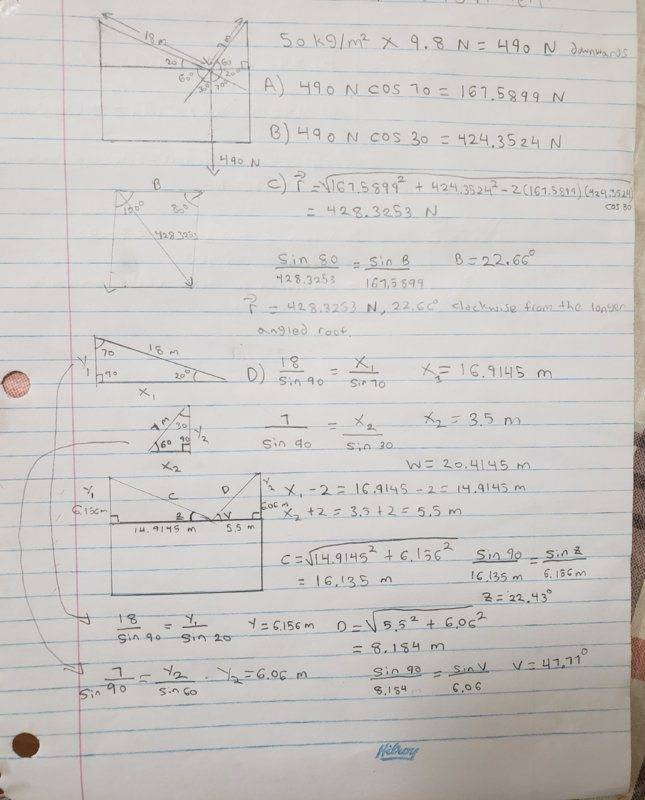 18 m
7 m
20° 60
60° 20°
20 70°
490 N
50 kg/m² × 9.8 N = 490 N downwards
A) 490 N cos 70 = 167.5899 N
B) 490 N cos 30 = 424.3524 N
C) r⃗ = √167.5899² + 424.3524² - 2(167.5899)(424.3524) cos 80
= 428.3253 N
B
100° 80°
428.3253
sin 80 / 428.3253 = sin B / 167.5899 B = 22.66°
r⃗ = 428.3253 N, 22.66° clockwise from the longer
angled roof.
Y1 70 18 m
90 20°
X1
D) 18 / sin 90 = X1 / sin 70 X1 = 16.9145 m
7 m 30 Y2
60 90
X2
7 / sin 90 = X2 / sin 30 X2 = 3.5 m
W = 20.4145 m
Y1 C D Y2
6.156m Z V 6.06m
14.9145 m 5.5 m
X1 - 2 = 16.9145 - 2 = 14.9145 m
X2 + 2 = 3.5 + 2 = 5.5 m
C = √14.9145² + 6.156² sin 90 / 16.135 m = sin Z / 6.156 m
= 16.135 m
Z = 22.43°
18 / sin 90 = Y1 / sin 20 Y = 6.156 m D = √5.5² + 6.06²
= 8.184 m
7 / sin 90 = Y2 / sin 60 . Y2 = 6.06 m sin 90 / 8.184 = sin V / 6.06 V = 47.77°
Hilroy